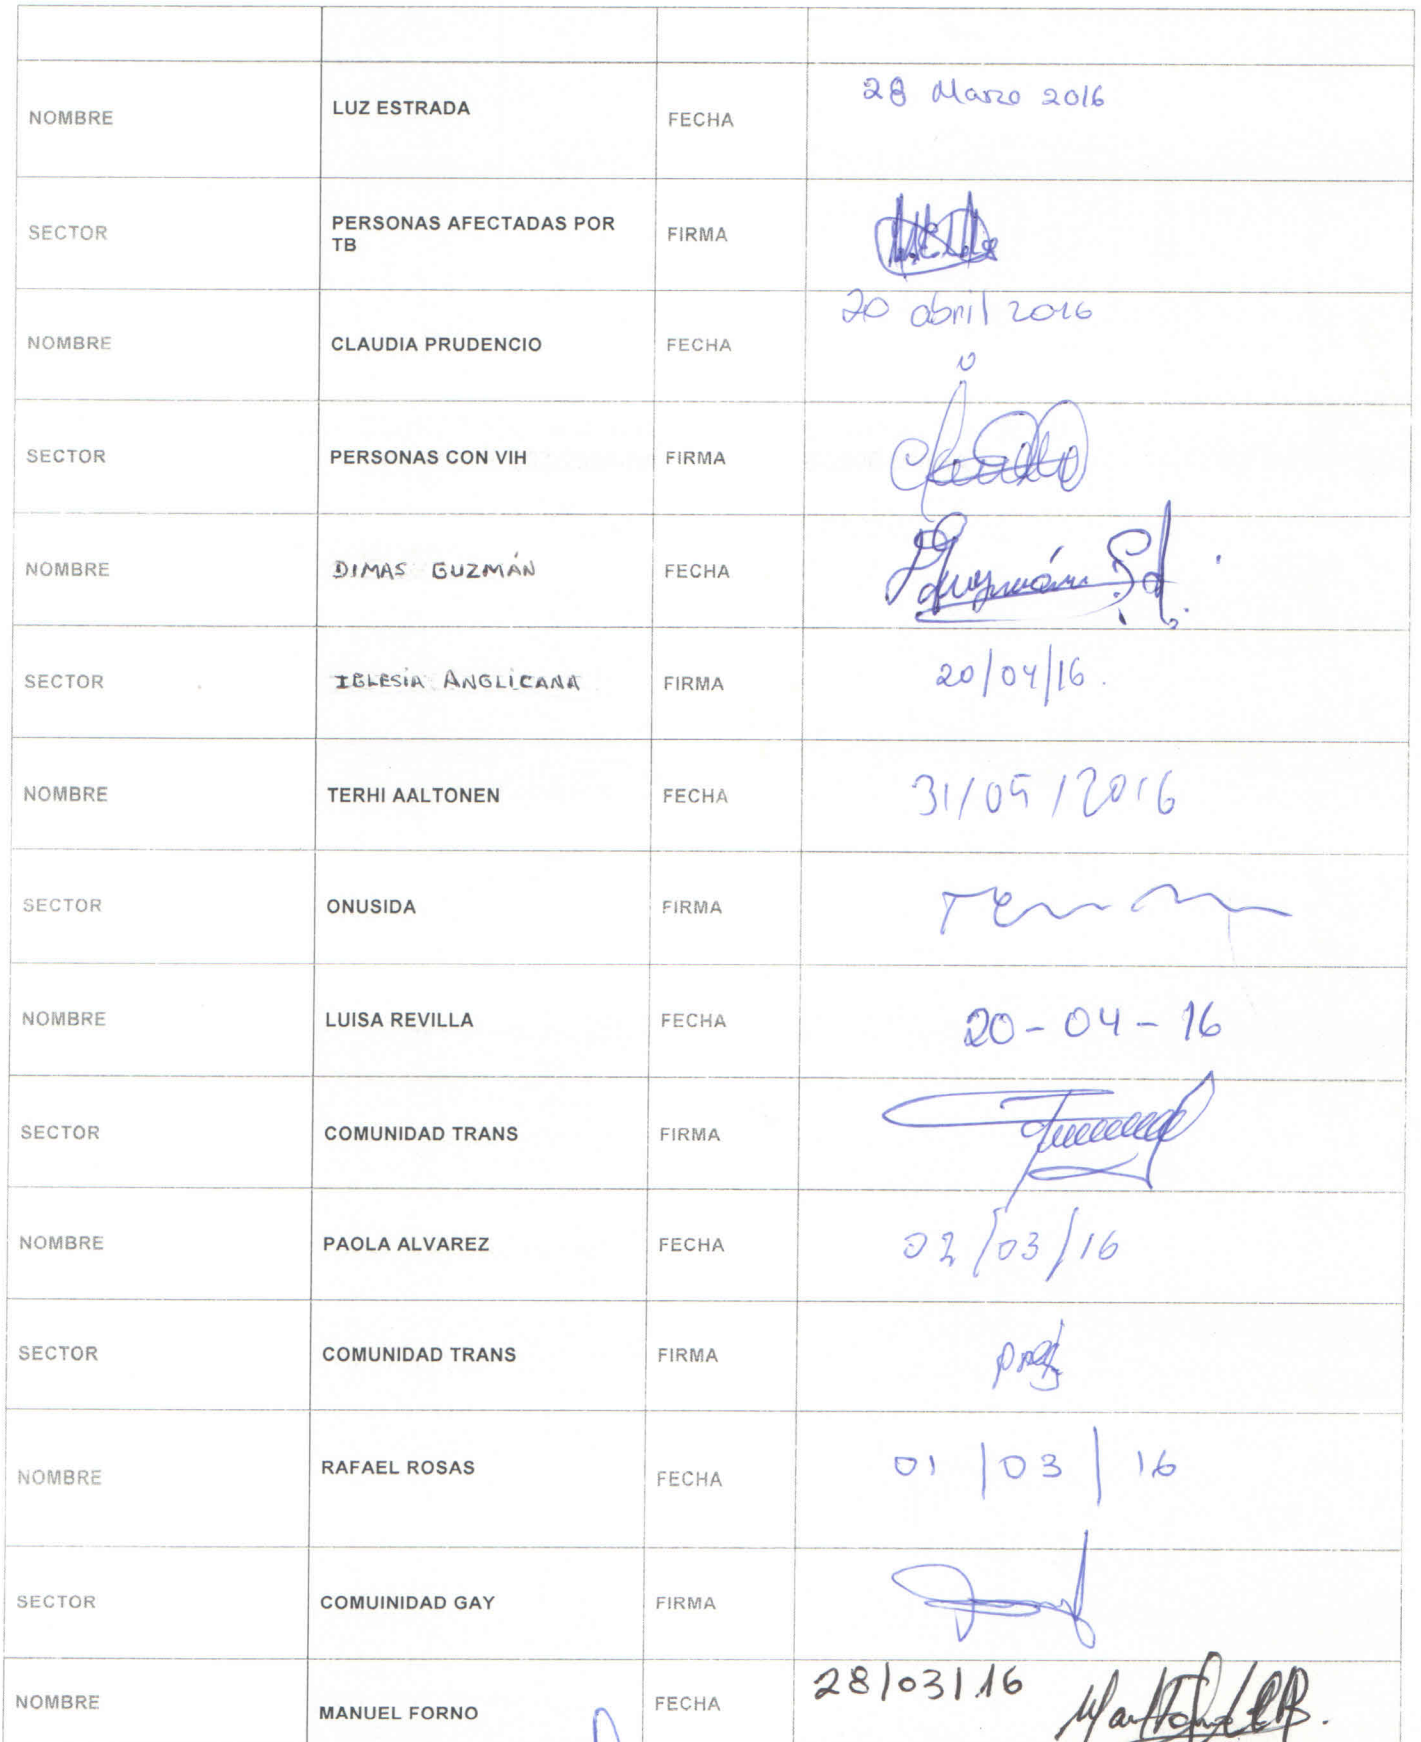 NOMBRE LUZ ESTRADA FECHA 28 Marzo 2016
SECTOR PERSONAS AFECTADAS POR
TB FIRMA
NOMBRE CLAUDIA PRUDENCIO FECHA 20 abril 2016
SECTOR PERSONAS CON VIH FIRMA
NOMBRE DIMAS GUZMÁN FECHA Guzmán
SECTOR IGLESIA ANGLICANA FIRMA 20/04/16.
NOMBRE TERHI AALTONEN FECHA 31/05/2016
SECTOR ONUSIDA FIRMA
NOMBRE LUISA REVILLA FECHA 20-04-16
SECTOR COMUNIDAD TRANS FIRMA
NOMBRE PAOLA ALVAREZ FECHA 02/03/16
SECTOR COMUNIDAD TRANS FIRMA
NOMBRE RAFAEL ROSAS FECHA 01/03/16
SECTOR COMUINIDAD GAY FIRMA
NOMBRE MANUEL FORNO FECHA 28/03/16